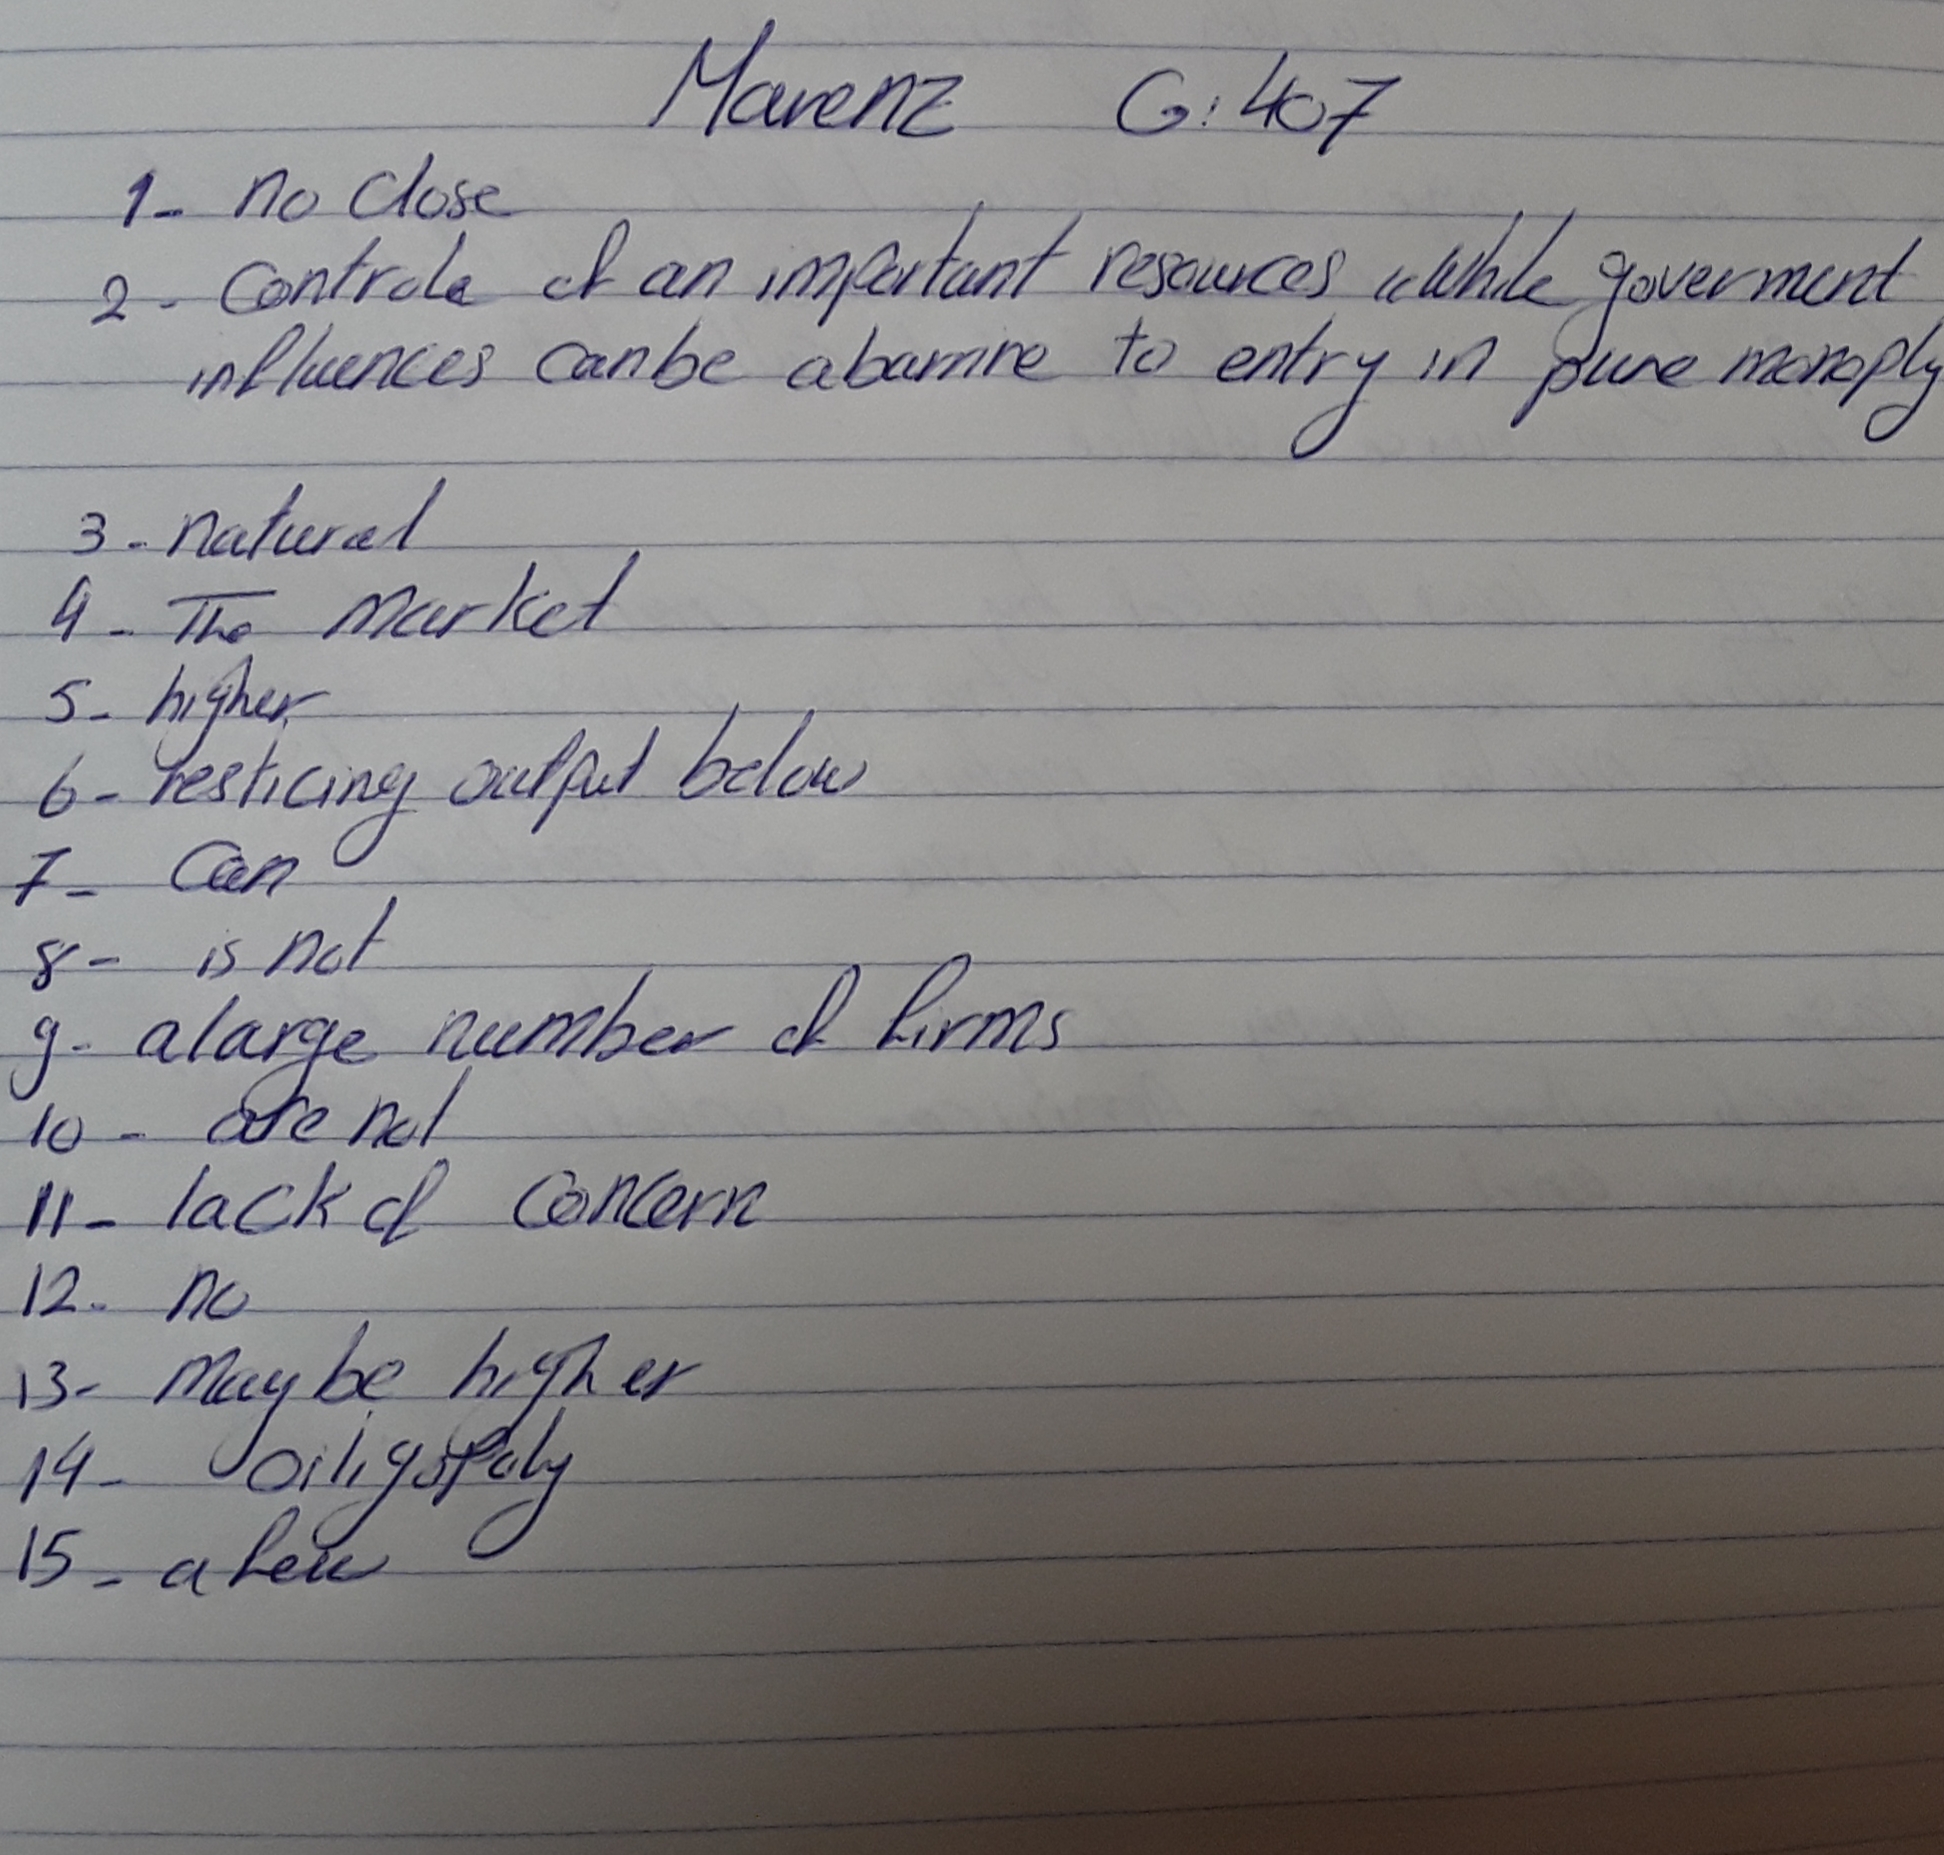 Marenz G: 407
1- no close
2- Controle of an important resources while goverment
influences canbe abarrire to entry in pure monoply
3- natural
4- The Market
5- higher
6- resticing output below
7- Can
8- is not
9- alarge number of firms
10- are not
11- lack of Concern
12- no
13- Maybe higher
14- Oiligopoly
15- a few